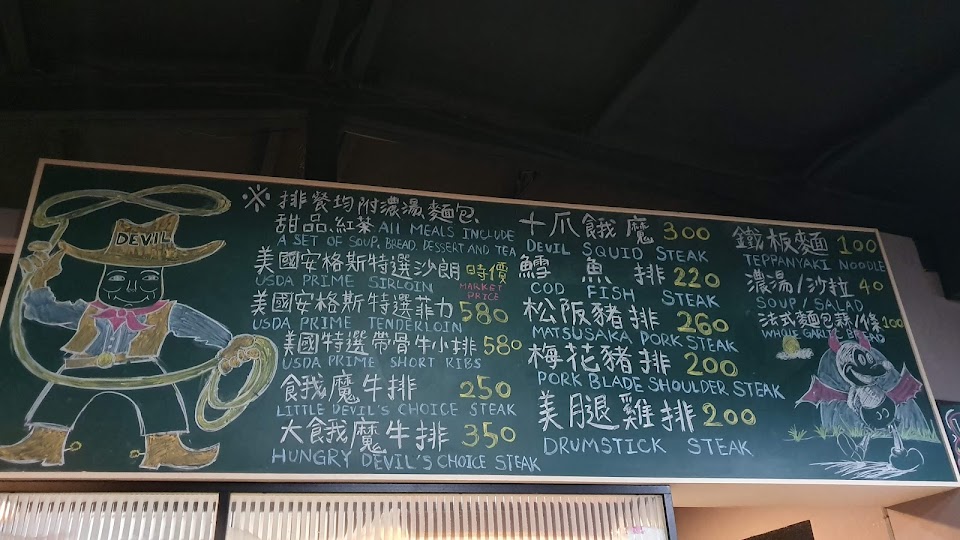 DEVIL
※排餐均附濃湯、麵包、
甜品、紅茶 All MEALS INCLUDE
A SET OF SOUP, BREAD, DESSERT AND TEA
美國安格斯特選沙朗 時價
USDA PRIME SIRLOIN MARKET PRICE
美國安格斯特選菲力 580
USDA PRIME TENDERLOIN
美國特選帶骨牛小排 580
USDA PRIME SHORT RIBS
餓魔牛排 250
LITTLE DEVIL'S CHOICE STEAK
大餓魔牛排 350
HUNGRY DEVIL'S CHOICE STEAK
十爪餓魔 300
DEVIL SQUID STEAK
鱈魚排 220
COD FISH STEAK
松阪豬排 260
MATSUSAKA PORK STEAK
梅花豬排 200
PORK BLADE SHOULDER STEAK
美腿雞排 200
DRUMSTICK STEAK
鐵板麵 100
TEPPANYAKI NOODLE
濃湯/沙拉 40
SOUP/SALAD
法式麵包蒜/條 100
WHOLE GARLIC BREAD